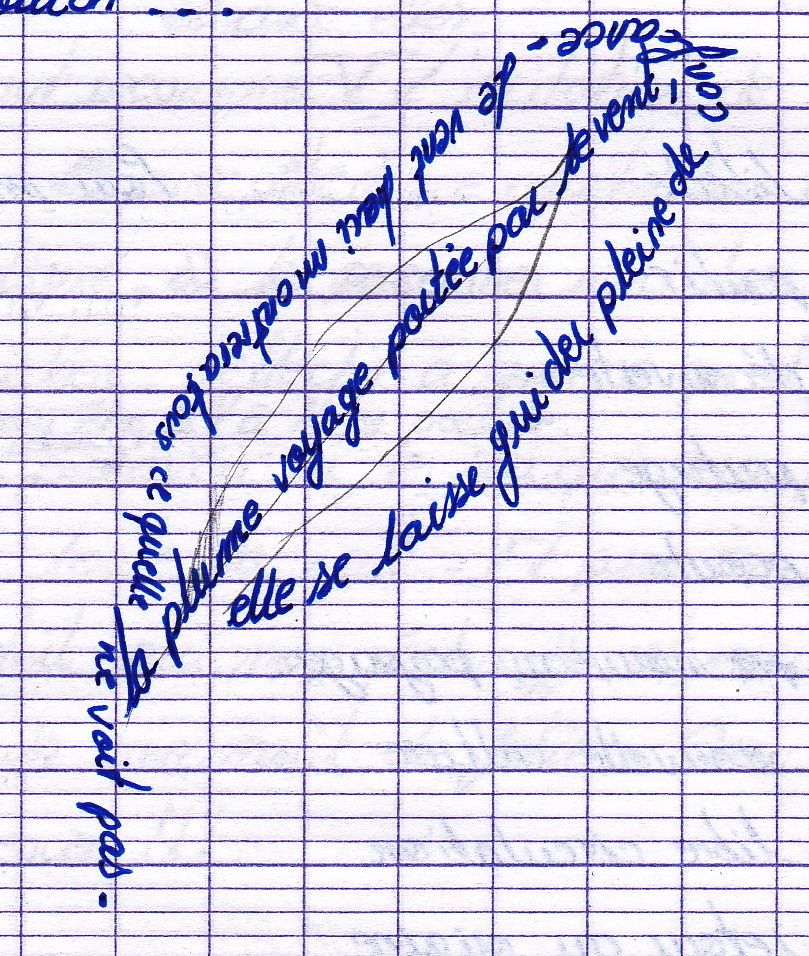 la plume voyage portée par le vent,
elle se laisse guider pleine de
confiance - le vent lui montrera tous ce quelle
ne voit pas -